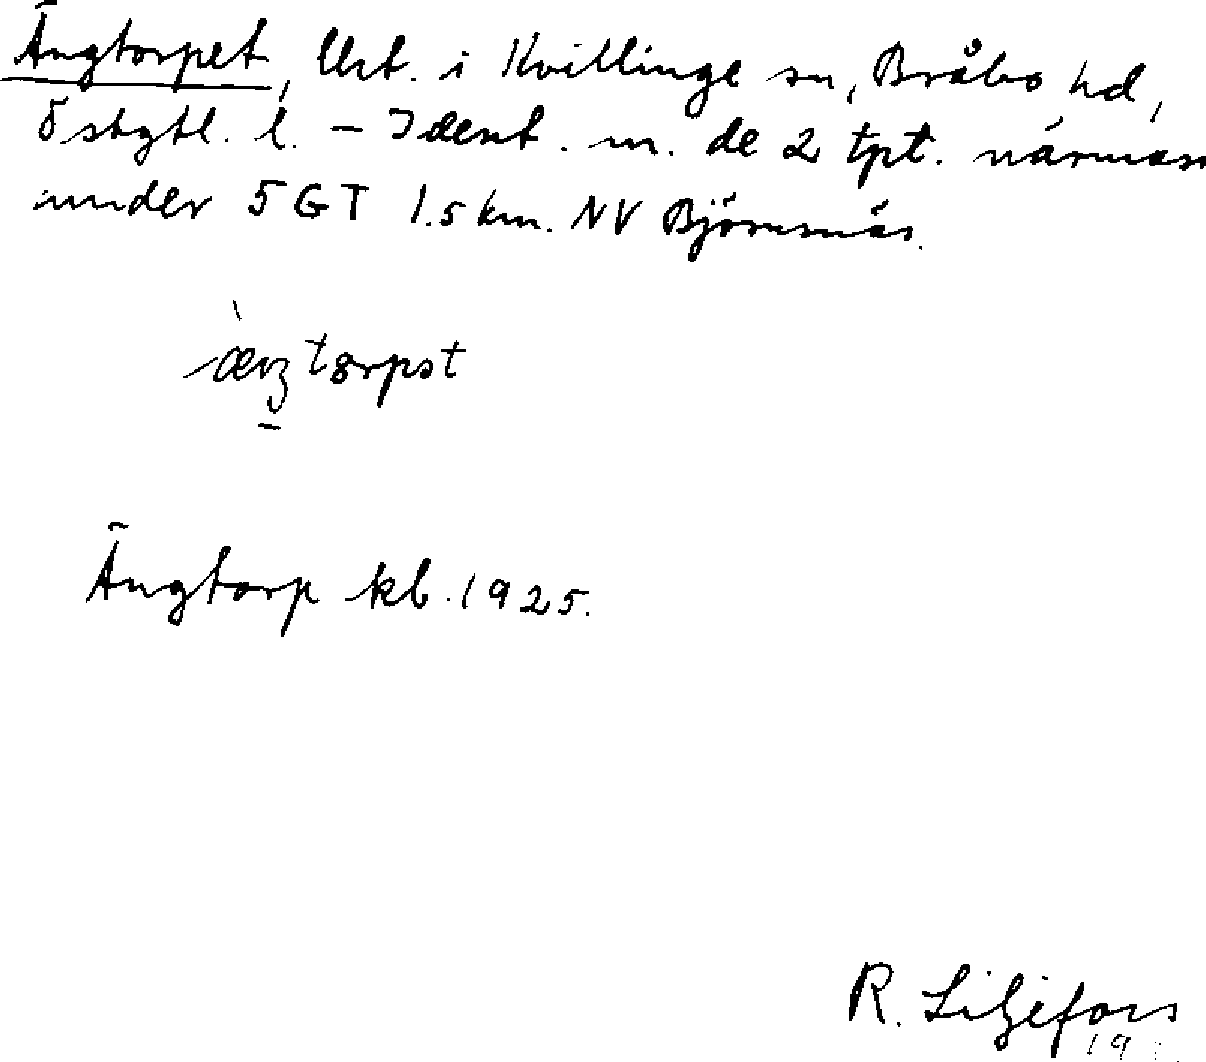 Ängtorpet, Urt. i Kvillinge sn, Bråbo hd,
Östgtl. l. – Ident. m. de 2 tpt. närmast
under 5 GT 1.5 km. NV Björnsnäs.
Ängtorp kb. 1925.
R. Liljefors
19